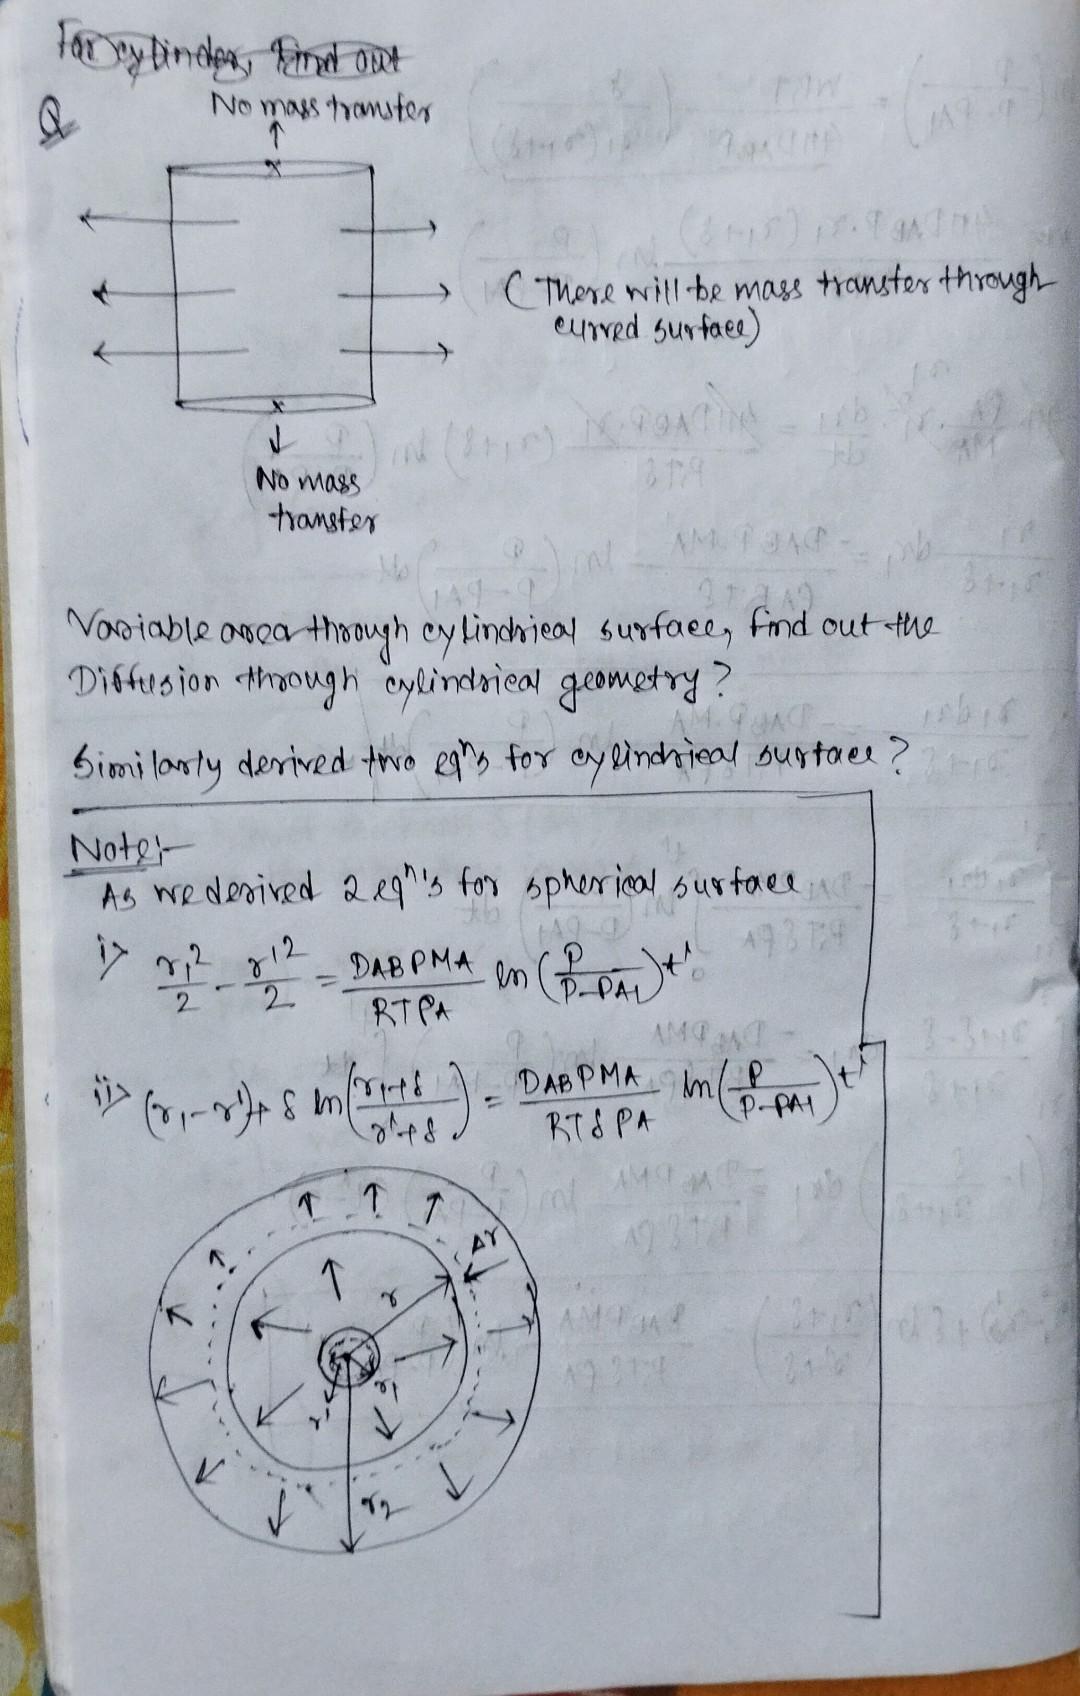 For cylinder, Find out
Q
No mass transfer
(There will be mass transfer through
curved surface)
No mass
transfer
Variable area through cylindrical surface, find out the
Diffusion through cylindrical geometry?
Similarly derived two eqn's for cylindrical surface?
Note:-
As we derived 2 eqn's for spherical surface
i> r₁²/2 - r'²/2 = DAB P MA / RT ρA ln (P / P-PA1) t'
ii> (r₁-r')+ δ ln (r₁+δ / r'+δ) = DAB P MA / RT δ ρA ln (P / P-PA1) t'
Δr
r
r₁
r'
r₂